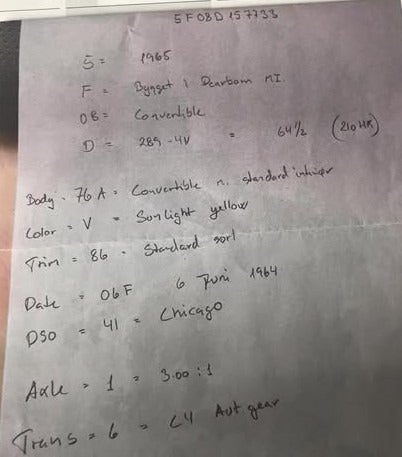 5F08D157733
5 = 1965
F = Bygget i Dearborn MI.
08 = Convertible
D = 289-4V = 64 1/2 (210 HK)
Body = 76 A = Convertible m. standard interiør
Color = V = Sunlight yellow
Trim = 86 = Standard sort
Date = 06F 6 Juni 1964
DSO = 41 = Chicago
Axle = 1 = 3.00:1
Trans = 6 = C4 Aut gear